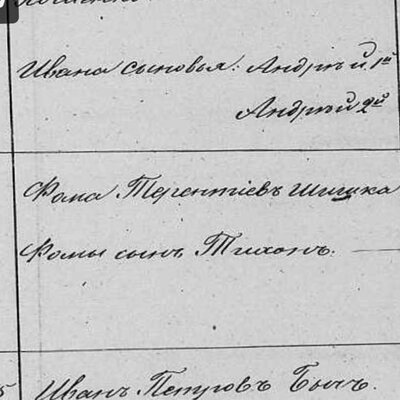 Ивана сыновья: Андрей 1й
Андрей 2й
Фома Терентіевъ Шишка
Фомы сынъ Тихонъ.
Иванъ Петровъ Быч.